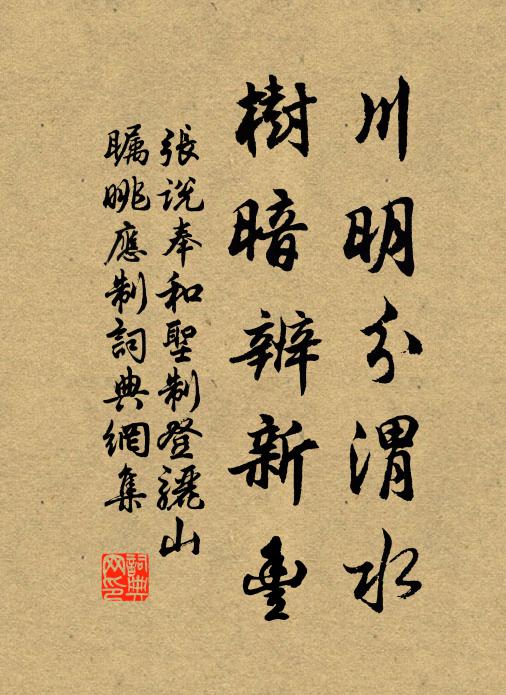 川明分渭水
樹暗辨新豐
張說奉和聖制登驪山
矚眺應制詞典網集
詞典網印